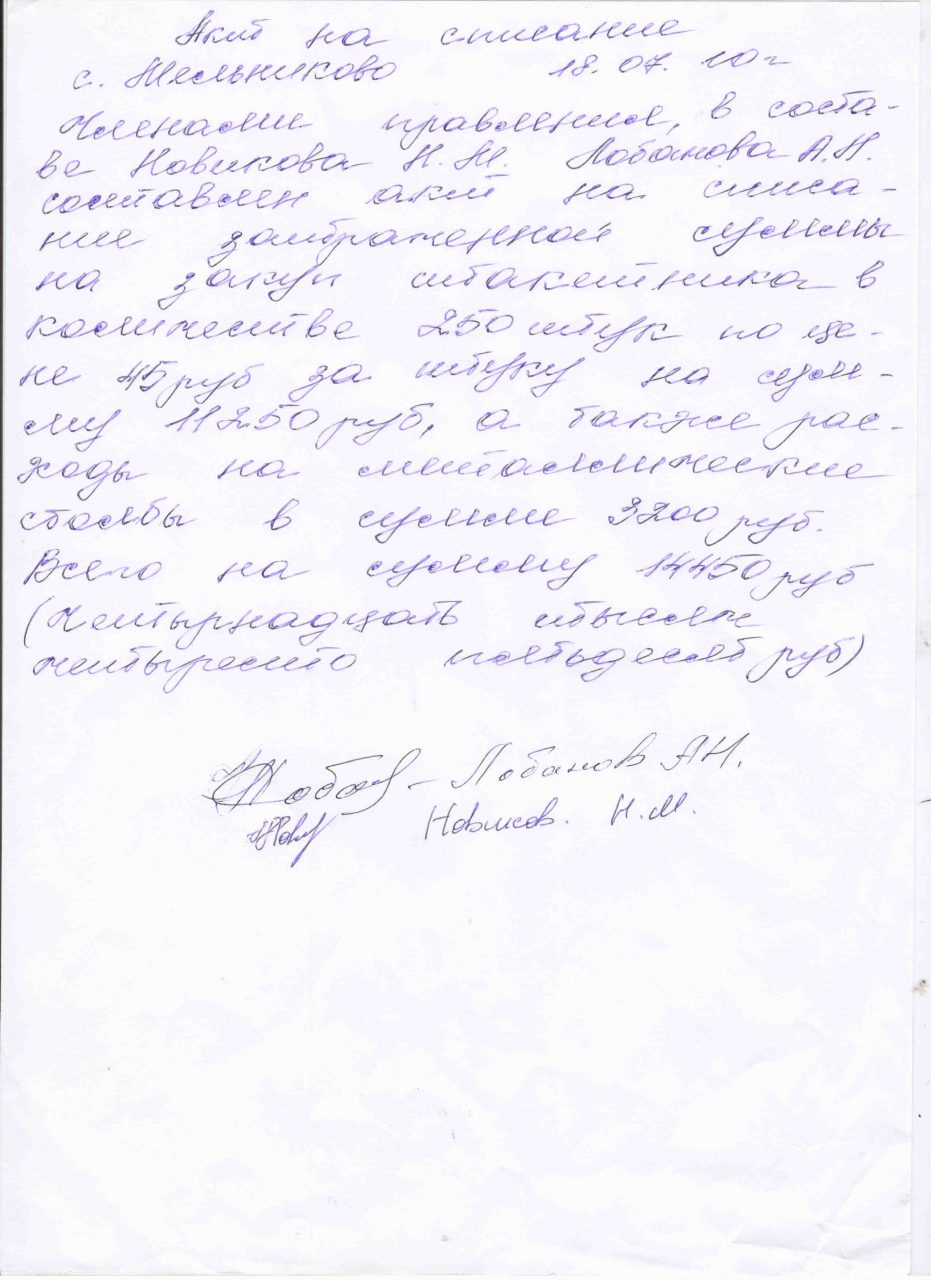 Акт на списание
с. Мельниково 18.07.10г
Членами правления, в соста-
ве Новикова Н.М. Лобанова А.Н.
составлен акт на списа-
ние затраченной суммы
на закуп штакетника в
количестве 250 штук по це-
не 45 руб за штуку на сум-
му 11250 руб, а также рас-
ходы на металлические
столбы в сумме 3200 руб.
Всего на сумму 14450 руб
(Четырнадцать тысяч
четыресто пятьдесят руб)
Лобанов АН.
Новиков. Н.М.